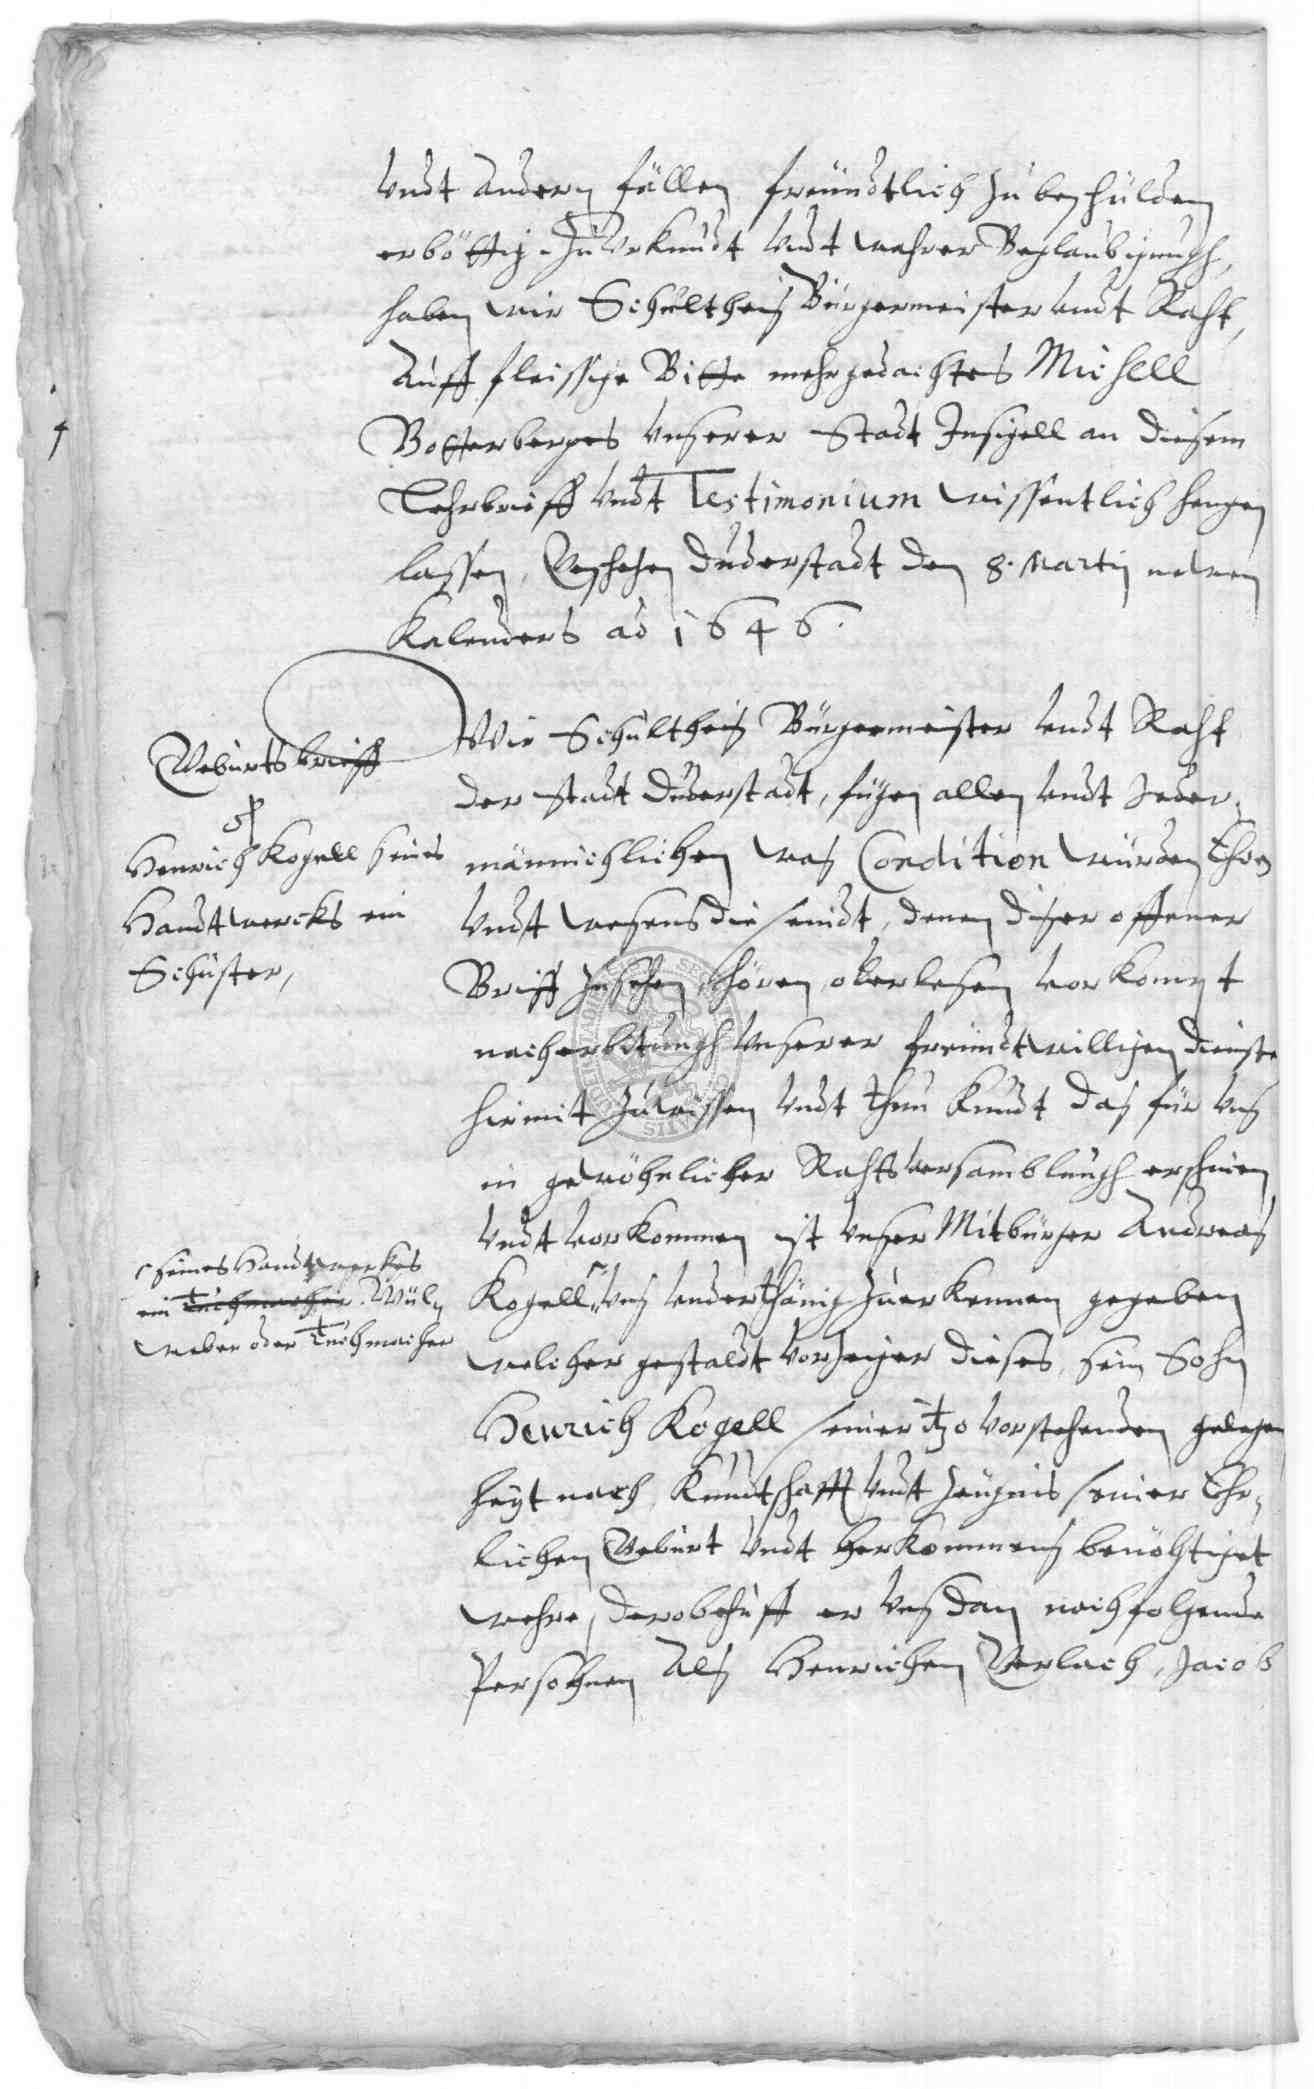 Undt andern fällen freundtlich zu beschulden
erböttig. Zu Urkundt Undt wahrer Beglaubigungh,
haben wir Schultheis Bürgermeister undt Raht,
Auff fleissige Bitte mehrgedachtes Michell
Botterberges Unserer Stadt Insigell an diesem
Lehrbrieff Undt Testimonium wissentlich hengen
lassen, Geschehen Duderstadt den 8. Martij newen
Kalenders ao 1646.
Geburtsbrieff
Henrich Kogell seines
Handtwercks ein
Schuster,
Wir Schultheis Bürgermeister undt Raht
der Stadt Duderstadt, fügen allen undt Jeder,
männichlichen was Condition würden Ehren
Undt wesens die seindt, denen diser offener
Briff zusehen, hören, oder lesen vorkompt
nach erbitungh Unserer freundtwilligen dienste
hiemit zuwissen Undt thun kundt das für Uns
in gewöhnlicher Rahtsversamblungh erschinen
Undt vorkommen ist unser Mitbürger Andreas
seines Handtwerkes
ein Tuchmacher. Wüln
weber oder Tuchmacher
Kogell Uns underthänig zuerkennen gegeben
welcher gestaldt vorzeiger dieses, sein Sohn
Henrich Kogell seiner itzo vorstehenden gelegen
heyt nach, Kundtschafft Undt zeugnis seiner Ehr,
lichen Geburt Undt herkommens benöhtiget
wehre, derobehuff er Uns dan nachfolgende
Persohnen Als Henrichen Gerlach, Jacob